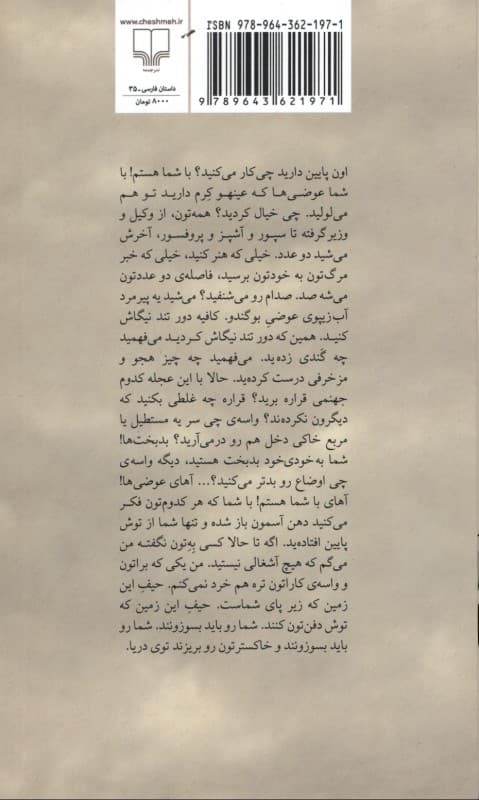 www.cheshmeh.ir
نشر چشمه
داستان فارسی ـ ۳۵
۸۰۰۰ تومان
ISBN 978-964-362-197-1
9 789643 621971
اون پایین دارید چی‌کار می‌کنید؟ با شما هستم! با
شما عوضی‌ها که عینهو کِرم دارید تو هم
می‌لولید. چی خیال کردید؟ همه‌تون، از وکیل و
وزیر گرفته تا سپور و آشپز و پروفسور، آخرش
می‌شید دو عدد. خیلی که هنر کنید، خیلی که خبر
مرگ‌تون به خودتون برسید، فاصله‌ی دو عددتون
می‌شه صد. صدام رو می‌شنفید؟ می‌شید یه پیرمرد
آب‌زیپوی عوضیِ بوگندو. کافیه دور تند نیگاش
کنید. همین که دور تند نیگاش کردید می‌فهمید
چه گَندی زده‌ید. می‌فهمید چه چیز هجو و
مزخرفی درست کرده‌ید. حالا با این عجله کدوم
جهنمی قراره برید؟ قراره چه غلطی بکنید که
دیگرون نکرده‌ند؟ واسه‌ی چی سر یه مستطیل یا
مربع خاکی دخل هم رو درمی‌آرید؟ بدبخت‌ها!
شما به‌خودی‌خود بدبخت هستید، دیگه واسه‌ی
چی اوضاع رو بدتر می‌کنید؟... آهای عوضی‌ها!
آهای با شما هستم! با شما که هر کدوم‌تون فکر
می‌کنید دهن آسمون باز شده و تنها شما از توش
پایین افتاده‌ید. اگه تا حالا کسی بِه‌تون نگفته من
می‌گم که هیچ آشغالی نیستید. من یکی که براتون
و واسه‌ی کاراتون تره هم خرد نمی‌کنم. حیفِ این
زمین که زیر پای شماست. حیفِ این زمین که
توش دفن‌تون کنند. شما رو باید بسوزونند. شما رو
باید بسوزونند و خاکسترتون رو بریزند توی دریا.